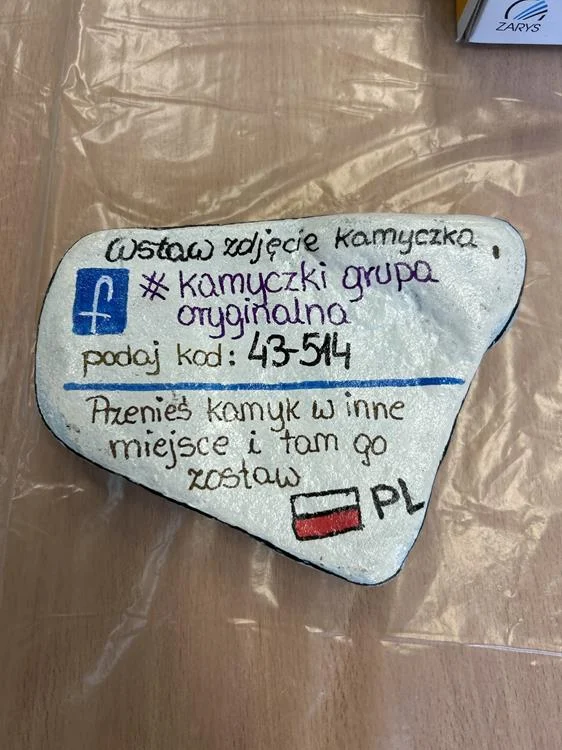 ZARYS
Wstaw zdjęcie kamyczka,
f # kamyczki grupa
oryginalna
podaj kod: 43-514
Przenieś kamyk w inne
miejsce i tam go
zostaw
PL